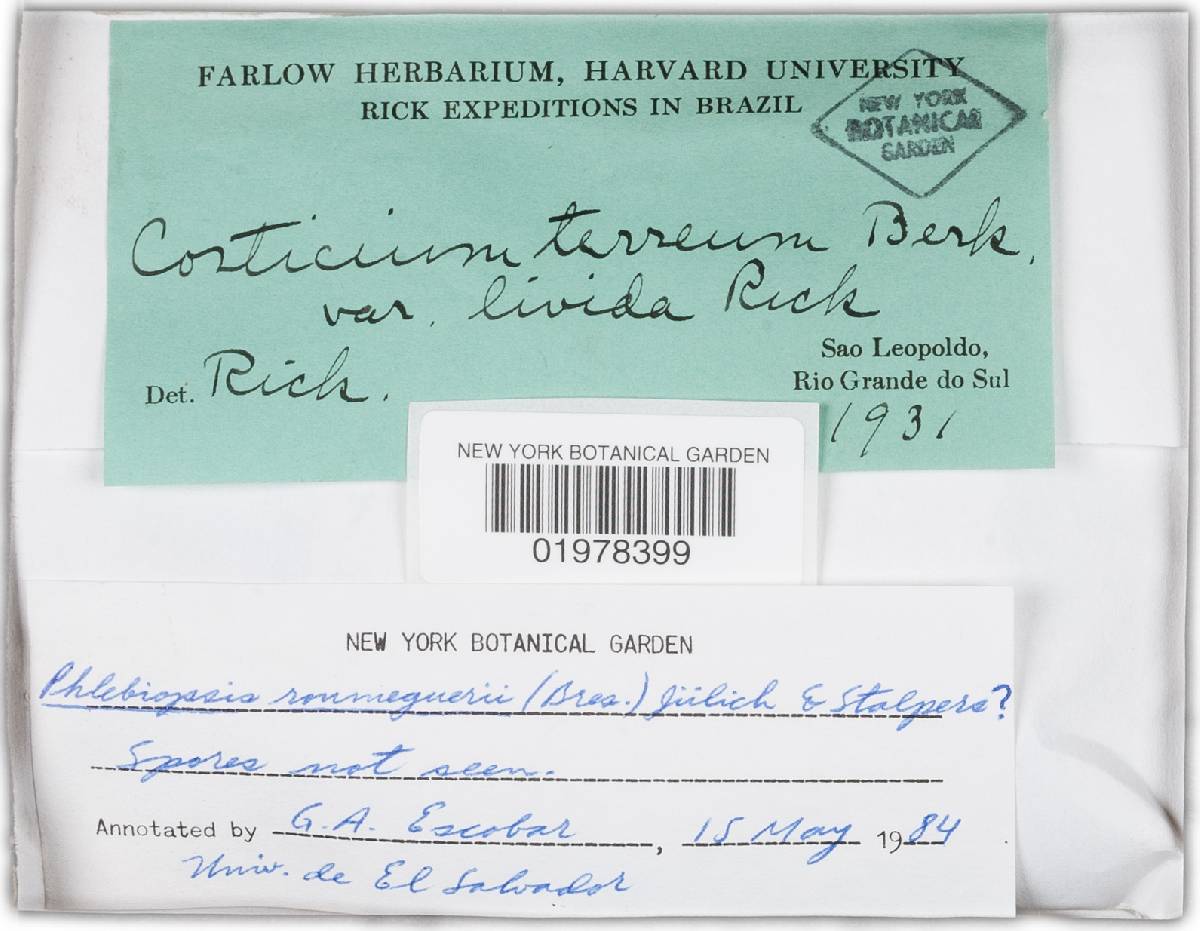 FARLOW HERBARIUM, HARVARD UNIVERSITY
RICK EXPEDITIONS IN BRAZIL
NEW YORK
BOTANICAL
GARDEN
Corticium terreum Berk.
var. livida Rick
Det. Rick.
Sao Leopoldo,
Rio Grande do Sul
1931
NEW YORK BOTANICAL GARDEN
01978399
NEW YORK BOTANICAL GARDEN
Phlebiopsis roumeguerii (Bres.) Jülich & Stalpers?
Spores not seen.
Annotated by G.A. Escobar, 15 May 1984
Univ. de El Salvador